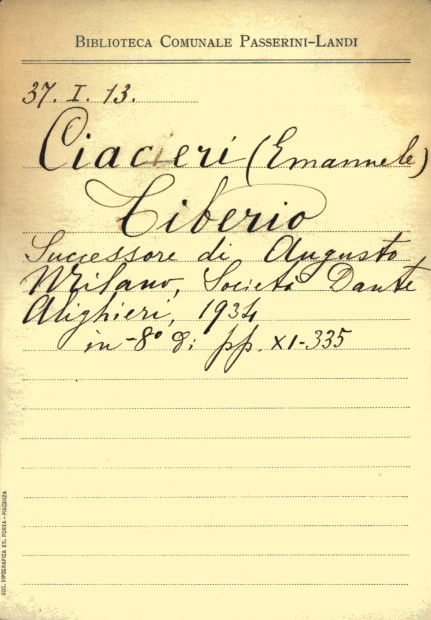 BIBLIOTECA COMUNALE PASSERINI-LANDI
37. I. 13.
Ciaceri (Emanuele)
Tiberio
Successore di Augusto
Milano, Società Dante
Alighieri, 1934
in-8° di pp. XI-335
SOC. TIPOGRAFICA ED. PORTA - PIACENZA